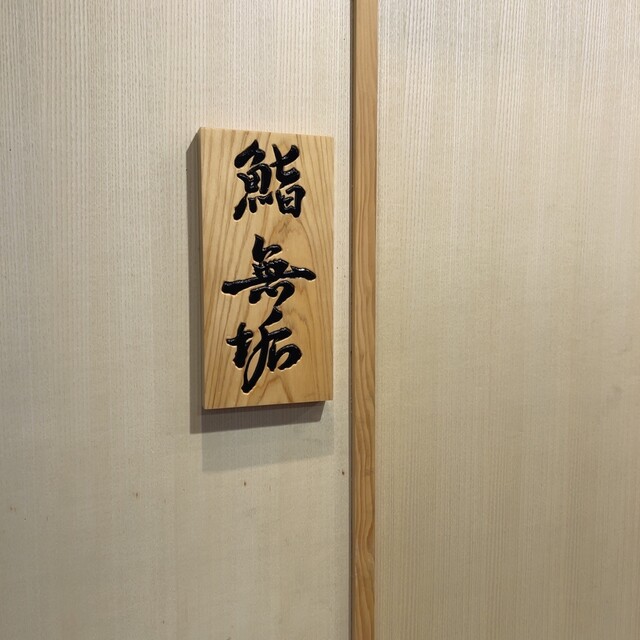 鮨
無垢